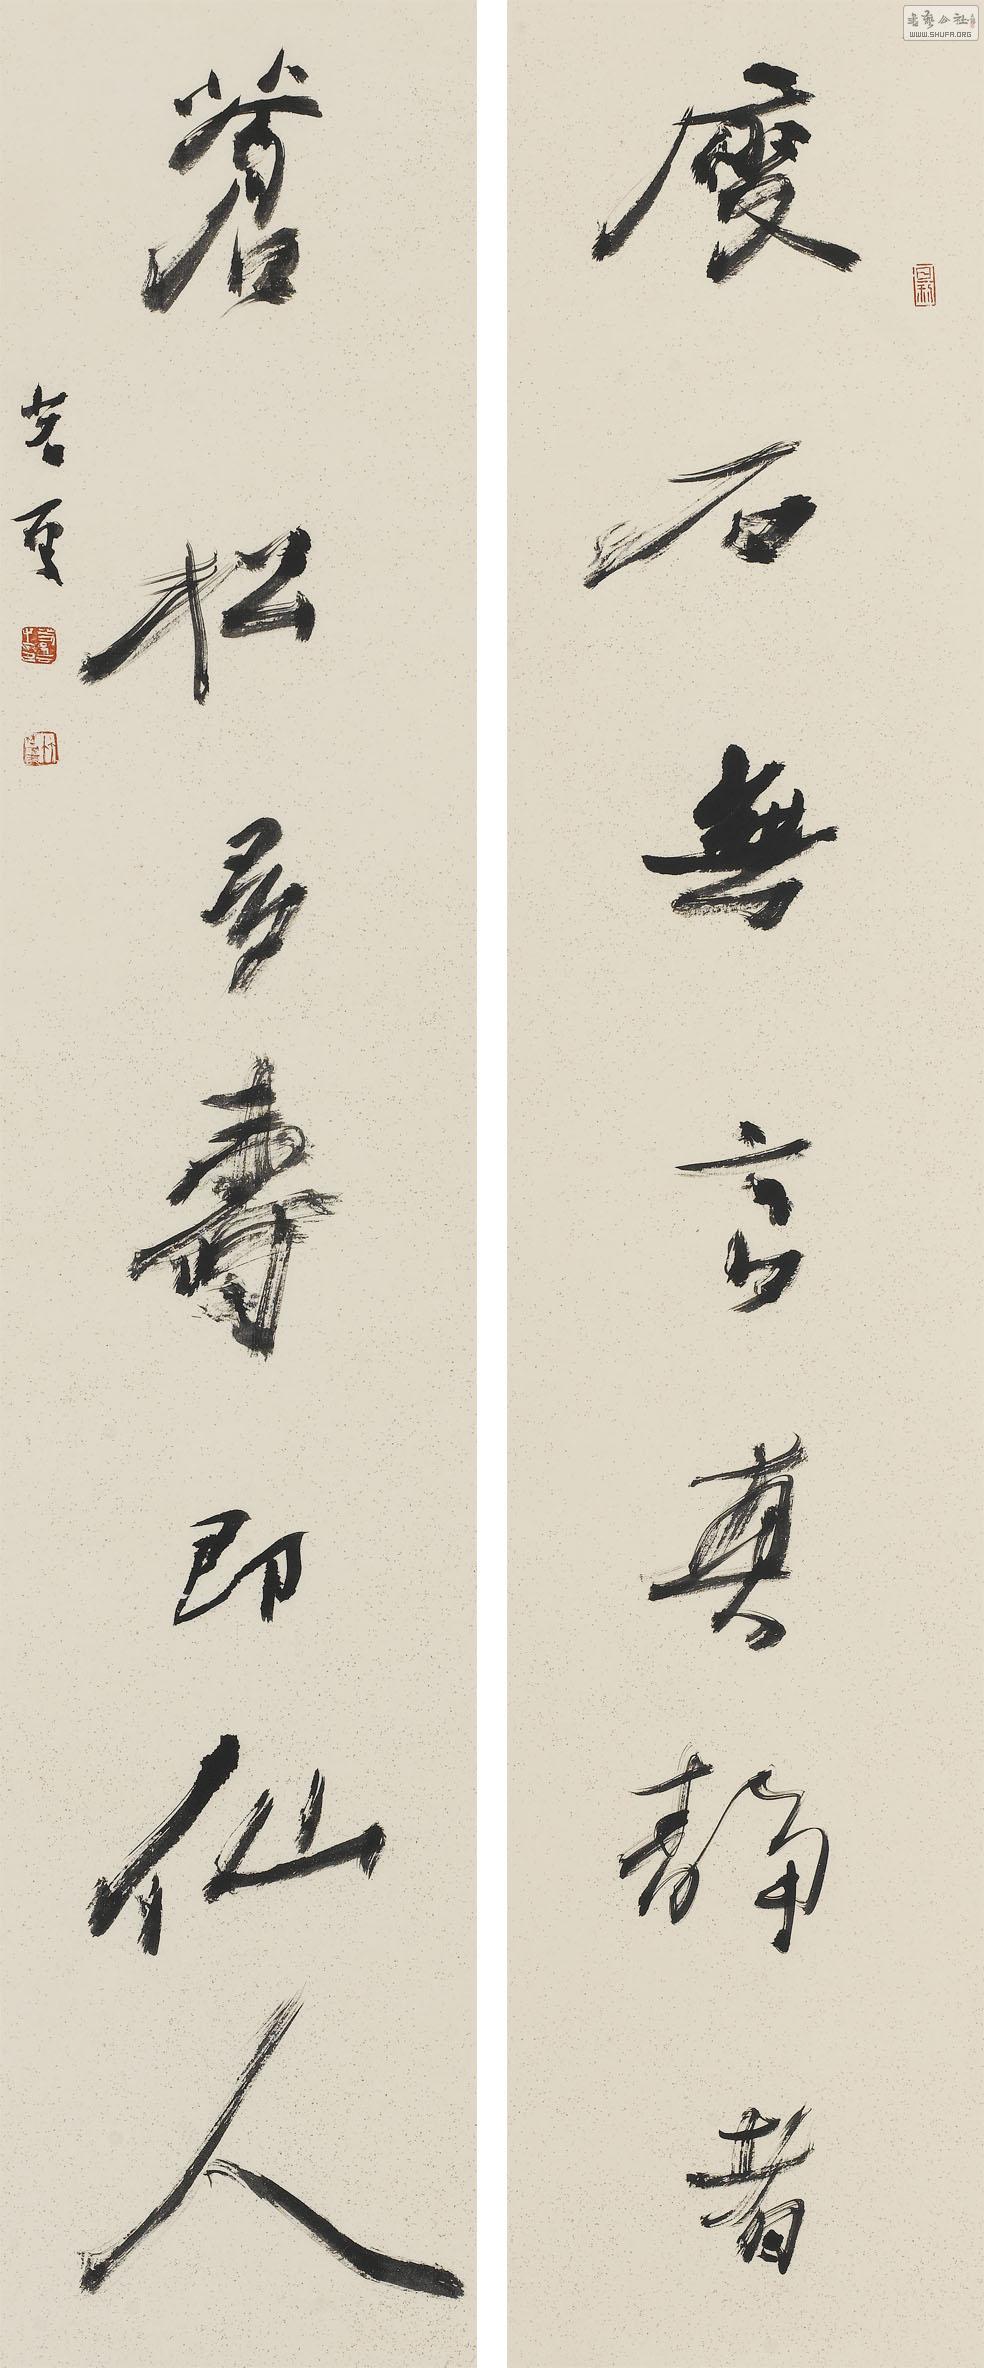 瘦石無言真靜者
蒼松多壽即仙人
WWW.SHUFA.ORG